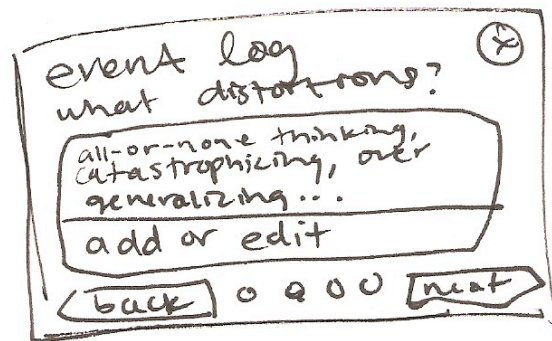 event log
what distortions?
all-or-none thinking,
catastrophizing, over
generalizing...
add or edit
back
next